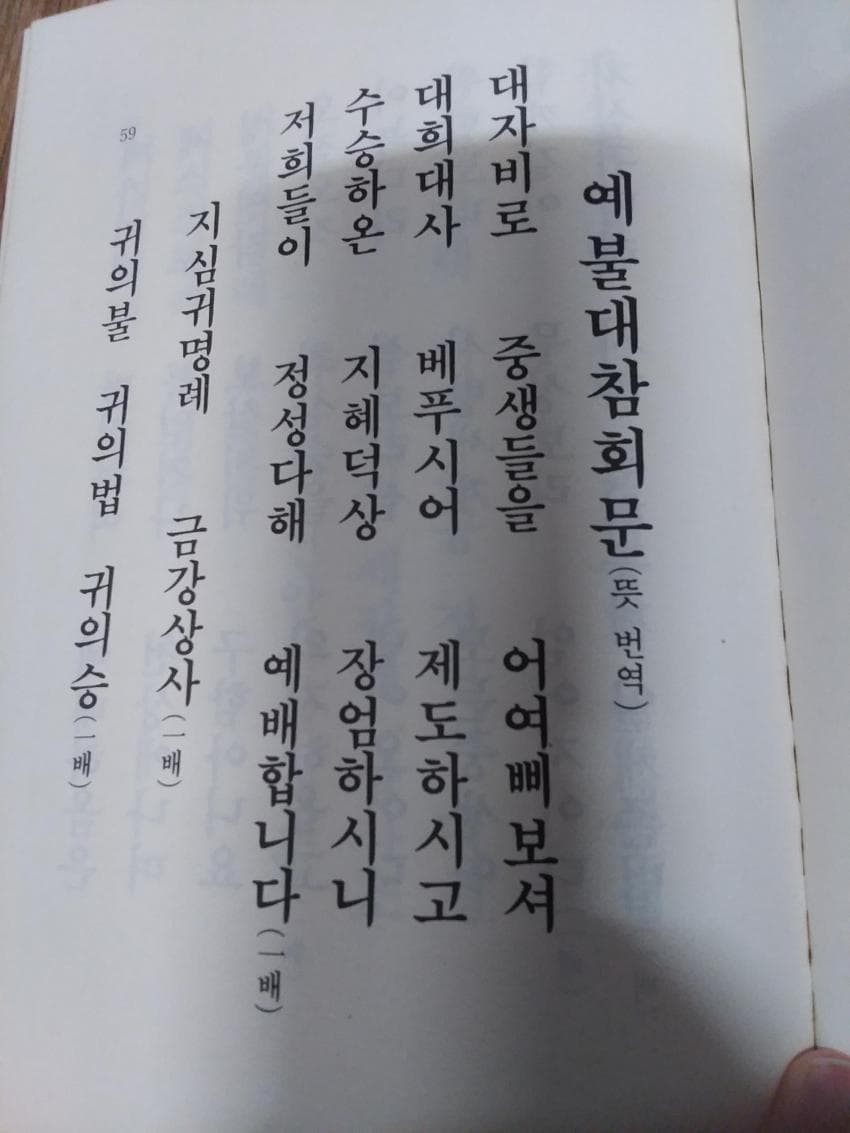 예불대참회문(뜻 번역)
대자비로 중생들을 어여삐보셔
대희대사 베푸시어 제도하시고
수승하온 지혜덕상 장엄하시니
저희들이 정성다해 예배합니다(一배)
지심귀명례 금강상사(一배)
귀의불 귀의법 귀의승(一배)
59